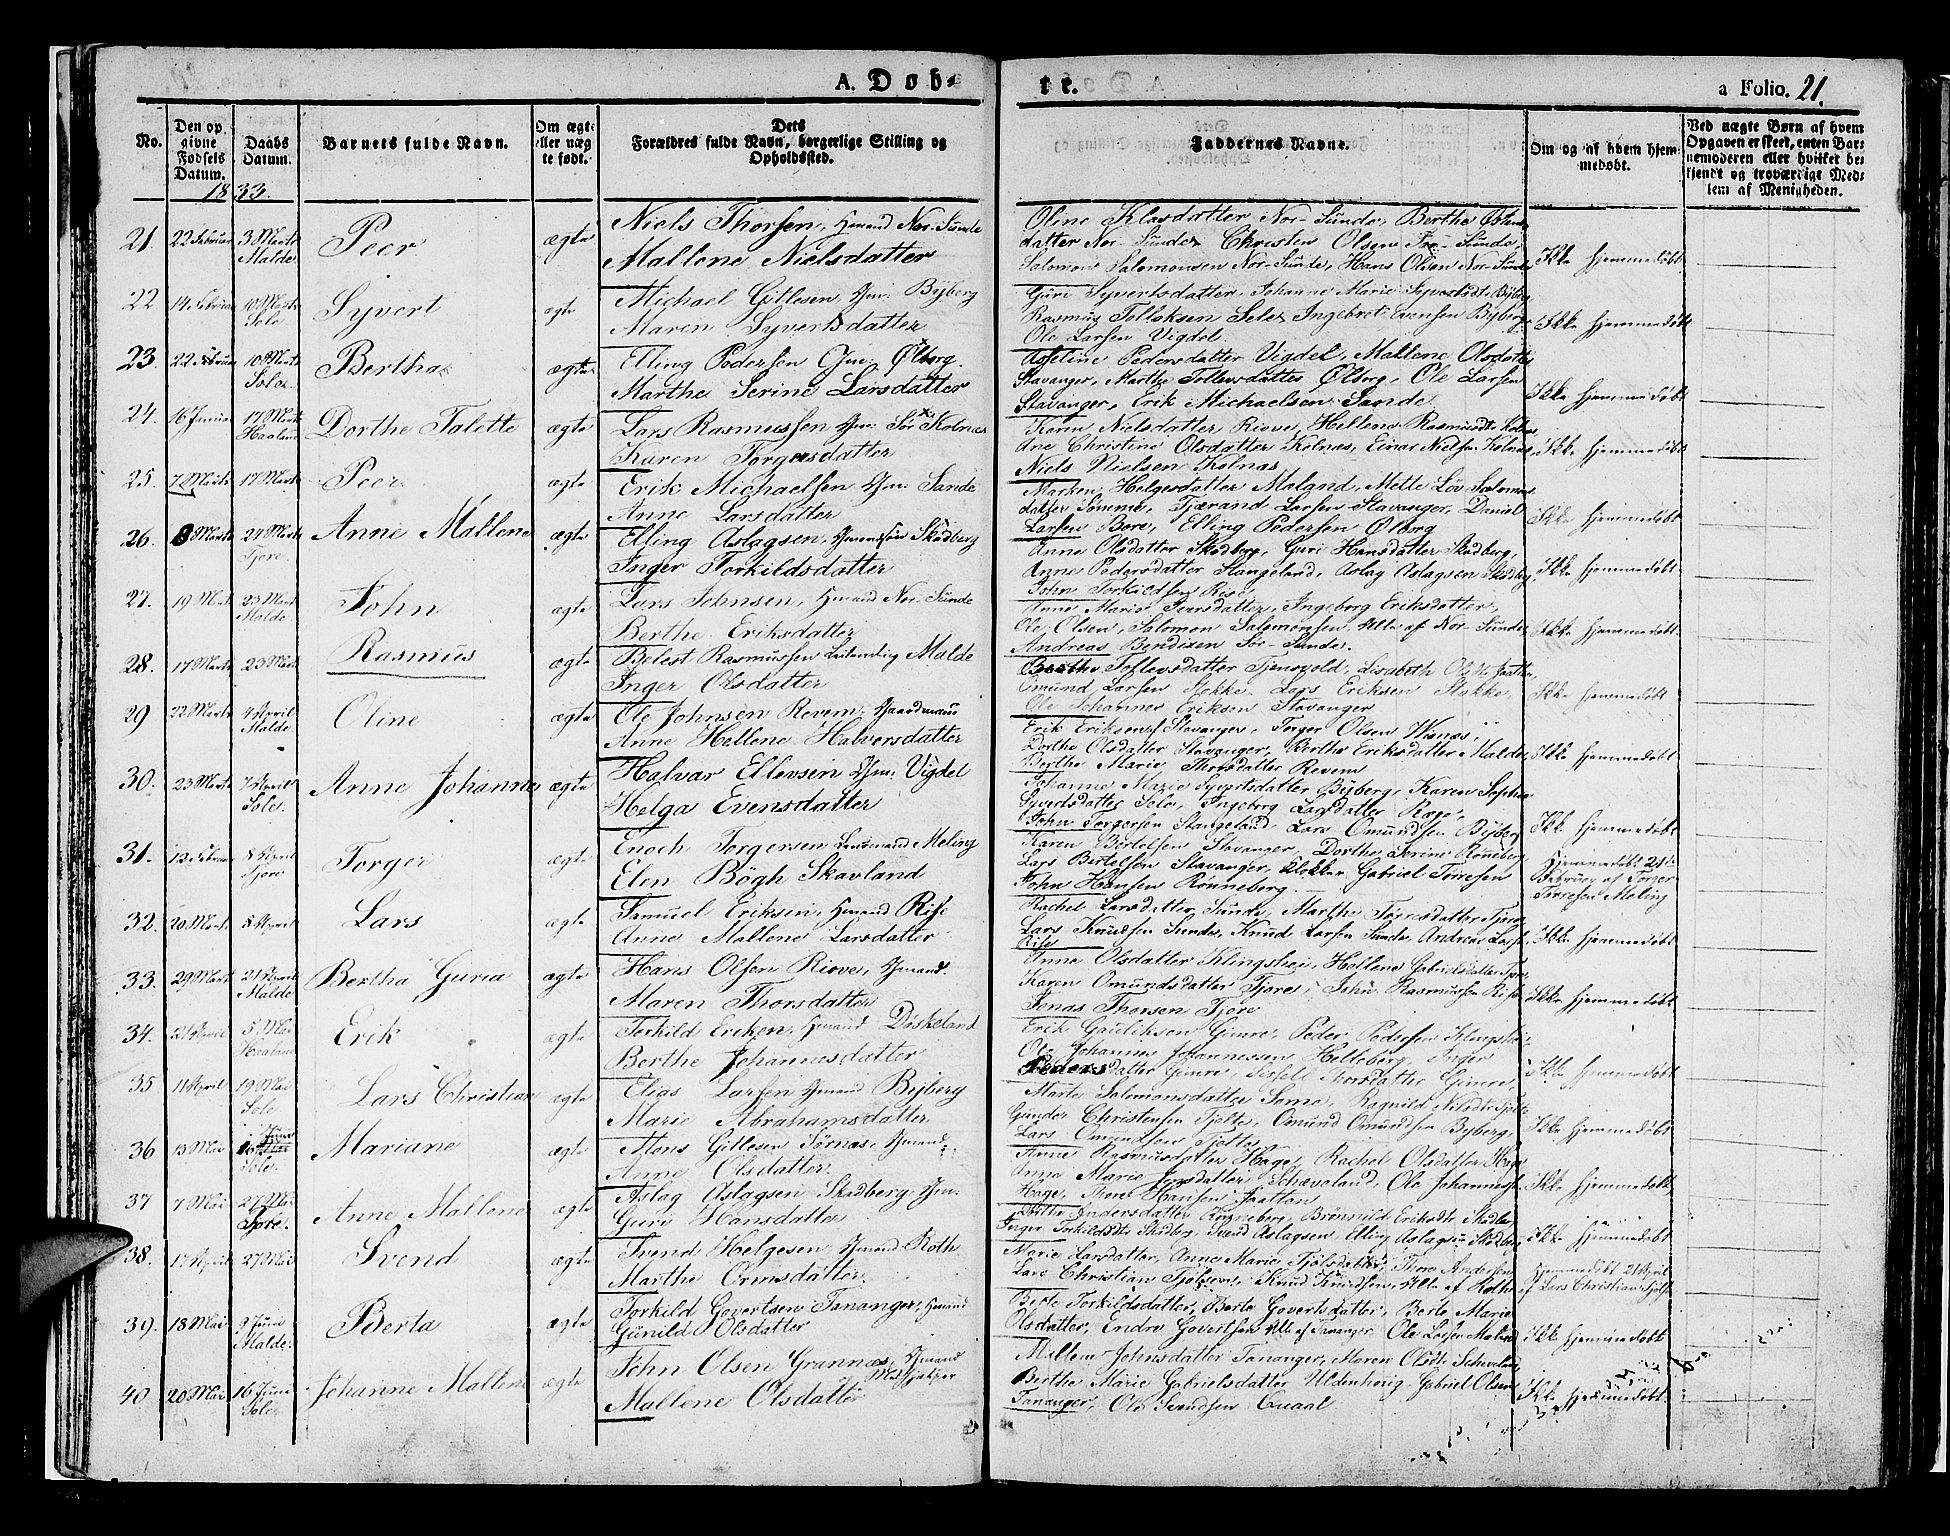 A. Døb-
te.
a Folio. 21.
No.
Den op
givne
Fødsels
Datum.
Daabs
Datum.
Barnets fulde Navn.
Om ægte
eller uæg
te født.
Dets
Forældres fulde Navn, borgerlige Stilling og
Opholdssted.
Faddernes Navne.
Om og af hvem hjem-
medøbt.
Ved uægte Børn af hvem
Opgaven er skeet, enten Bar-
nemoderen eller hvilket be-
kjendt og troværdige Med-
lem af Menigheden.
1833.
21. 22 Februar 3 Marts Malde. Peer ægte
Niels Thorsen, Hmand Nor-Sunde
Mallene Nielsdatter
Oline Klasdatter Nor-Sunde, Berthe
datter Nor-Sunde, Christen Olsen Sunde,
Salomon Salomonsen Nor-Sunde, Hans Olsen Nor-Sunde
Ikke hjemmedøbt
22 14 Februar 10 Marts Sole. Syvert ægte
Michael Gitlesen Byberg
Maren Syvertsdatter
Guri Syvertsdatter, Johanne Marie Byberg
Rasmus Tollaksen Sele, Ingebret Evensen Byberg
Ole Larsen Vigdel.
Ikke hjemmedøbt
23. 22 Februar 10 Marts Sole. Bertha ægte
Elling Pedersen Ølborg.
Marthe Serine Larsdatter
Pedersdatter Vigdel, Mallene Olsdatter
Stavanger, Marthe Ølborg, Ole Larsen
Stavanger, Erik Michaelsen Sande.
Ikke hjemmedøbt
24. 16 17 Marts Haaland Dorthe Talette ægte
Lars Rasmussen Sør Kolnes
Karen Torgersdatter
Karen Nielsdatter Hellene Kolnes
Christine Olsdatter Kolnes, Einar Nielsen Kolnes
Niels Nielsen Kolnas
Ikke hjemmedøbt
25. 7 Marts 17 Marts Peer ægte
Erik Michaelsen Sande
Anne Larsdatter
Helgesdatter Maland, Mette
datter Sømme, Tjærand Larsen Stavanger, Daniel
Larsen Bore, Elling Pedersen Ølborg
Ikke hjemmedøbt
26. 8 Marts 24 Marts Tjore. Anne Mallene ægte
Elling Aslagsen, Skadberg
Inger Torkildsdatter
Anne Olsdatter Skadberg, Guri Hansdatter Skadberg,
Anne Pedersdatter Stangeland, Aslag Aslagsen Skadberg
John Torkildsen Rise.
Ikke hjemmedøbt
27. 19 Marts 23 Marts Malde. John ægte
Lars Johnsen, Hmand Nor-Sunde
Berthe Eriksdatter
Anne Marie Ingeborg Eriksdatter,
Ole Olsen, Salomon Salomonsen, Alle af Nor-Sunde,
Andreas Bendixsen Sør-Sunde.
Ikke hjemmedøbt.
28. 17 Marts 23 Marts Rasmus ægte
Rasmussen Leilending Malde
Inger Olsdatter
Lisabeth
Omund Larsen Stokke, Lars Eriksen Stokke,
Ole Johannes Eriksen Stavanger
Ikke hjemmedøbt
29 22 Marts 4 April Malde. Oline ægte
Ole Johnsen Revem, Gaardmand
Anne Hellene Halversdatter
Erik Eriksen Stavanger, Torger Olsen
Dorthe Olsdatter Stavanger, Berthe Eriksdatter Malde,
Berthe Marie Thorsdatter Revem
Ikke hjemmedøbt
30. 23 Marts 7 April Sole. Anne Johanne ægte
Halvar Ellevsen Vigdel
Helga Evensdatter
Johanne Marie Syvertsdatter Byberg, Karen Sophia
Syvertsdatter Sole, Ingeborg Larsdatter
John Torgersen Stangeland, Lars Omundsen Byberg
Ikke hjemmedøbt
31. 12 Februar 8 April Tjore Torger ægte
Enoch Torgersen Lensmand Meling
Elen Bøgh Skavland
Karen Bertelsen Stavanger, Dorthe Serine Rønneberg
Lars Bertelsen Stavanger, Klokker Gabriel Torresen
John Hansen Rønneberg.
hjemmedøbt
Februar af Torger
Torresen Meling
32. 20 Marts 8 April Lars ægte
Samuel Eriksen, Hmand Rise
Anne Mallene Larsdatter
Rachel Larsdatter Sunde, Marthe Tjore,
Lars Knudsen Sunde, Knud Larsen Sunde, Andreas
Rise
Ikke hjemmedøbt
33. 29 Marts 21 April Malde. Bertha Guria ægte
Hans Olsen Hmand.
Maren Thorsdatter
Anne Olsdatter Klingshei, Hellene Gabrielsdatter Tjore
Karen Omundsdatter Tjore, John Rasmussen Rise
Jonas Thorsen Tjore
Ikke hjemmedøbt
34. 21 April 5 Mai Haaland Erik ægte
Torkild Hmand Døskeland
Berthe Johannesdatter
Erik Gimre, Peder Pedersen Klingshei
Ole Johannes Johannessen Helleberg, Inger
Pedersdatter Gimre, Thorsdatter Gimre,
Ikke hjemmedøbt
35 11 April 19 Mai Sole. Lars Christian ægte
Elias Larsen Hmand Byberg
Marie Abrahamsdatter
Marte Salomonsdatter Some, Ragnild Tjotte
Gunder Christensen Tjotte, Omund Omundsen Byberg,
Lars Omundsen Tjotte
Ikke hjemmedøbt
36 13 Mai Sole. Mariane ægte
Mons Gitlesen Sørnas, Hmand
Anne Olsdatter
Anne Rasmusdatter Hage, Rachel Olsdatter Hage
Anne Marie Skæveland, Ole
Hage, Thore Hansen Jaatten
Ikke hjemmedøbt
37 7 Mai 27 Mai Tjore. Anne Mallene ægte
Aslag Aslagsen Skadberg
Guri Hansdatter
Andersdatter Rønneberg, Brønnild Skadberg
Inger Skadberg, Svend Aslagsen, Elling Aslagsen Skadberg
Ikke hjemmedøbt
38. 17 April 27 Mai Svend ægte
Svend Helgesen, Hmand Roth
Marthe Ormsdatter
Marie Larsdatter, Anne Marie Thore Andersen
Lars Christian Knud Knudsen, Alle af Roth
hjemmedøbt 21 April
af Lars Christian
39. 18 Mai 9 Juni Malde. Berta ægte
Torkild Govertsen Tananger, Hmand
Gunild Olsdatter
Berte Torkildsdatter, Berte Govertsdatter, Berte Marie
Olsdatter, Endre Govertsen Alle af Tananger. Ole Larsen
Ikke hjemmedøbt
40 20 Mai 16 Juni Sole. Johanne Mallene ægte
John Olsen Grannes, Hmand
Mallene Olsdatter
Johnsdatter Tananger, Maren
Berthe Marie Gabrielsdatter Gabriel Olsen
Tananger, Ole Svendsen
Ikke hjemmedøbt